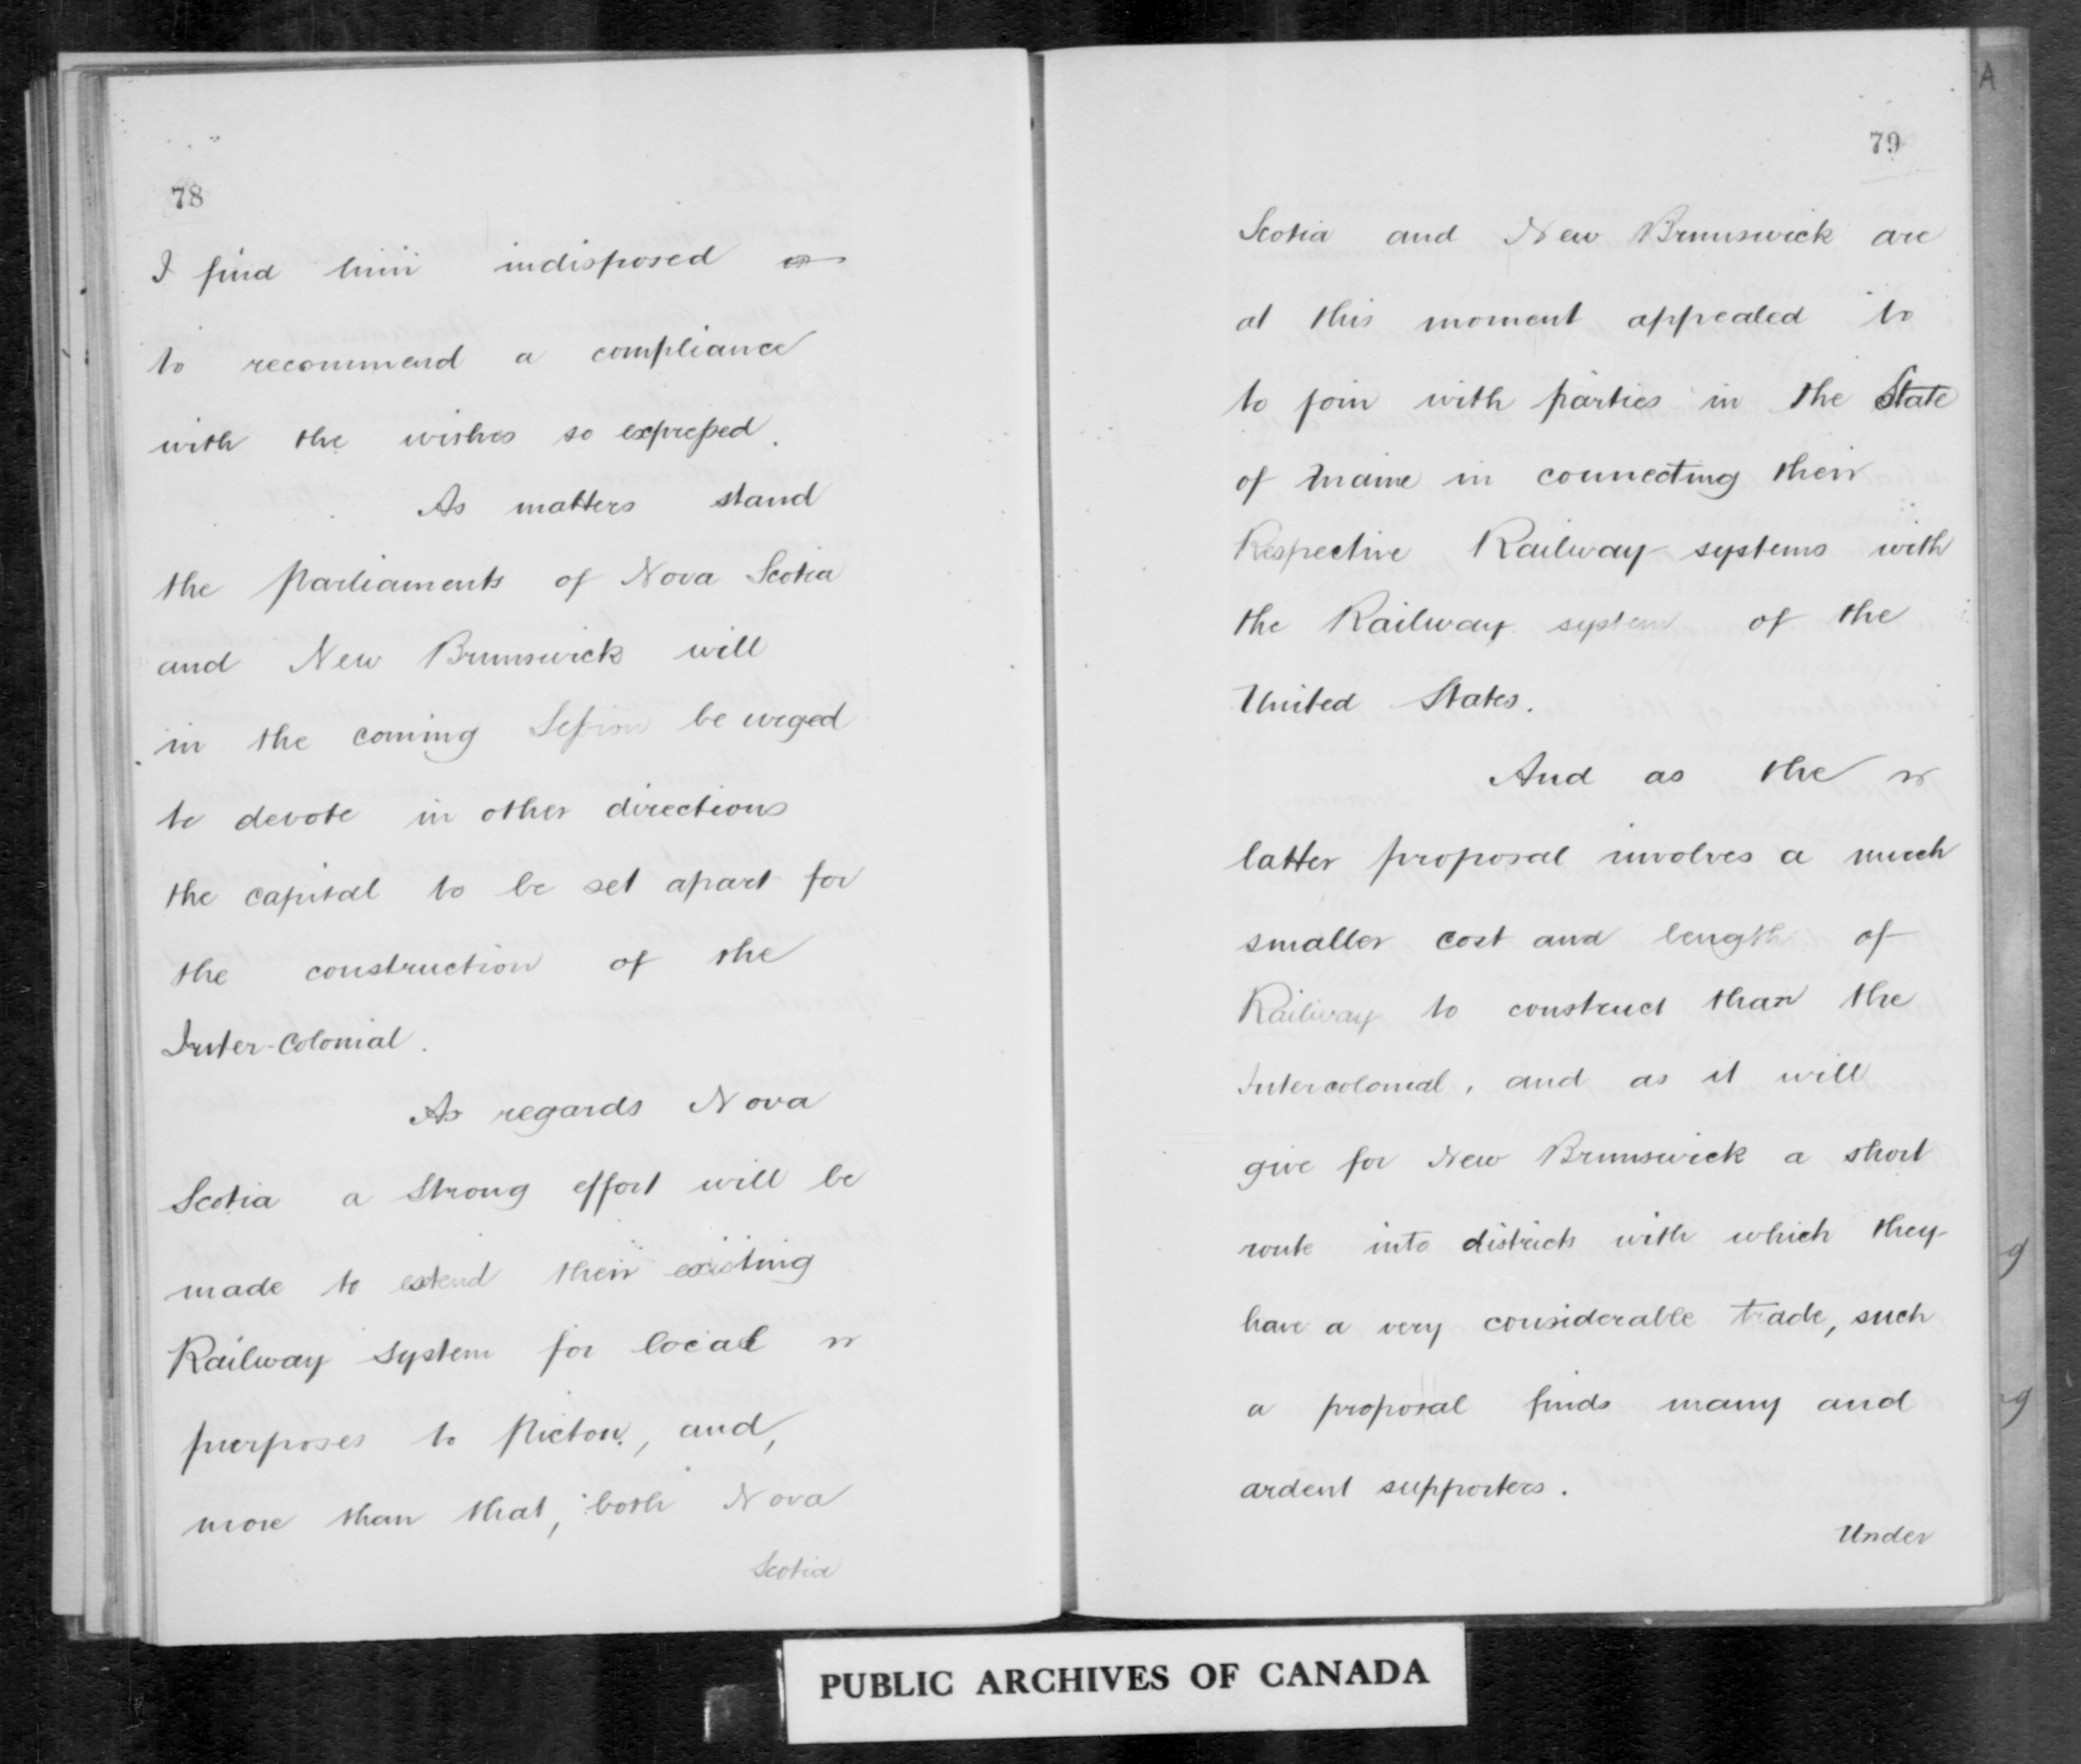 78
I find him indisposed
to recommend a compliance
with the wishes so expressed.
As matters stand
the Parliaments of Nova Scotia
and New Brunswick will
in the coming Session be urged
to devote in other directions
the capital to be set apart for
the construction of the
Inter-Colonial.
As regards Nova
Scotia a strong effort will be
made to extend their existing
Railway system for local
purposes to Pictou, and,
more than that, both Nova
Scotia
79
Scotia and New Brunswick are
at this moment appealed to
to join with parties in the State
of Maine in connecting their
Respective Railway systems with
the Railway system of the
United States.
And as the
latter proposal involves a much
smaller cost and length of
Railway to construct than the
Intercolonial, and as it will
give for New Brunswick a short
route into districts with which they
have a very considerable trade, such
a proposal finds many and
ardent supporters.
Under
A
g
g
PUBLIC ARCHIVES OF CANADA